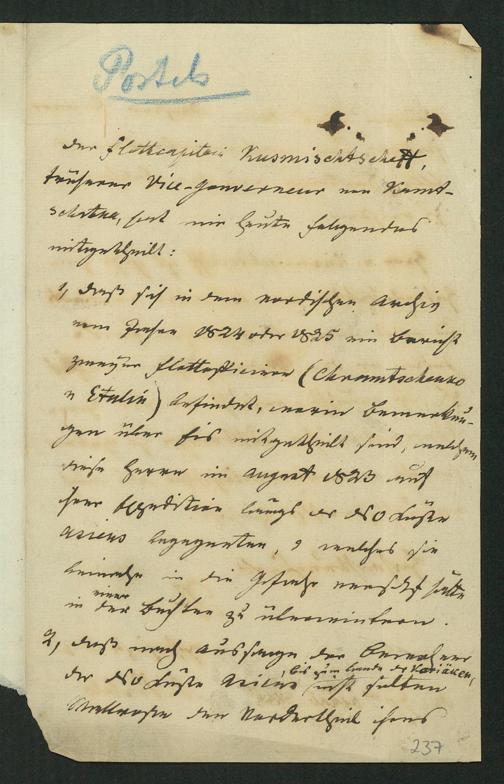 Postels
Der Flottcapitain Kusmischtscheff,
früherer Vice-Gouverneur von Kamt-
schatka, hat mir heute folgendes
mitgetheilt:
1, daß sich in dem nordischen Archiv
vom Jahre 1824 oder 1825 ein Bericht
zweyer Flottofficiere (Chramtschenko
u Etolin) befindet, worin Bemerkun-
gen über Eis mitgetheilt sind, welchem
diese Herren im August 1823 auf
ihrer Expedition längs der NO Küste
Asiens begegneten, u welches sie
beinahe in die Gefahr versetzt hätte
in einer der Buchten zu überwintern.
2, daß nach Aussage der Bewohner
der NO Küste Asiens, bis zum Lande der Koriäken,
nicht selten
Wallrosse den Vordertheil ihres
237